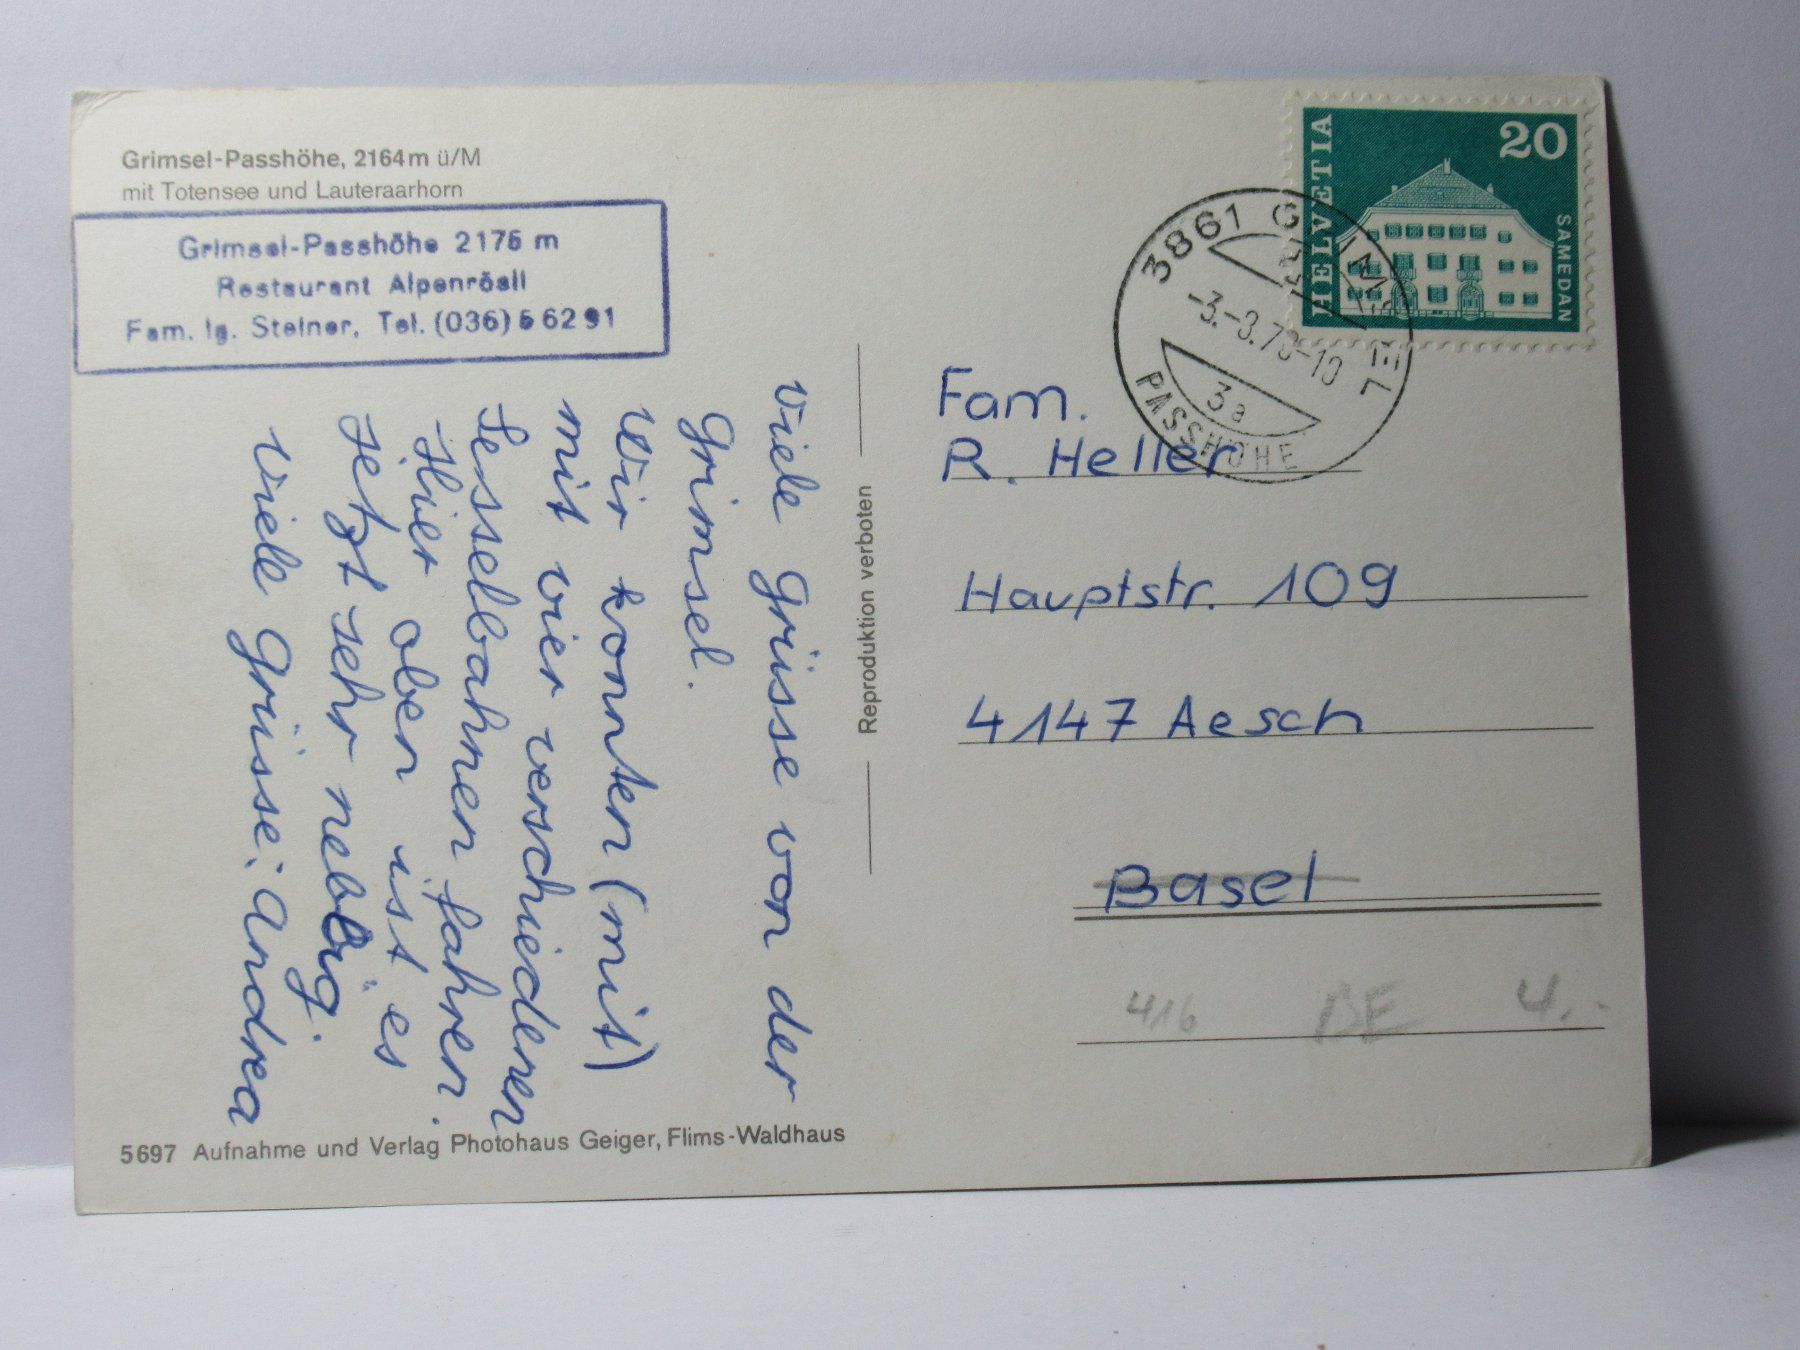 Grimsel-Passhöhe, 2164m ü/M
mit Totensee und Lauteraarhorn
Grimsel-Passhöhe 2175 m
Restaurant Alpenrösli
Fam. Ig. Steiner, Tel. (036) 5 62 91
Viele Grüsse von der
Grimsel.
Wir konnten (mit)
mit vier verschiedenen
Sesselbahnen fahren.
Hier oben ist es
jetzt sehr neblig.
Viele Grüsse: Andrea
5697 Aufnahme und Verlag Photohaus Geiger, Flims-Waldhaus
Reproduktion verboten
HELVETIA
20
SAMEDAN
3861 GRIMSEL
-3.-3.7 -10
3a
PASSHÖHE
Fam.
R. Heller
Hauptstr. 109
4147 Aesch
Basel
416 BE 4.-